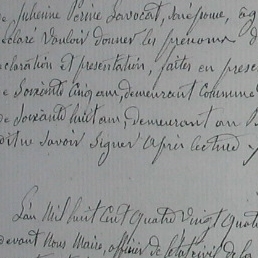 de, Julienne Perrine Lavocat, son épouse, ag
déclaré vouloir donner les prénoms d
déclaration et présentation, faites en prese
de soixante cinq ans, demeurant commune
de soixante huit ans, demeurant au
savoir signer après lecture
L'an Mil huit Cent Quatre Vingt Quat
devant Nous Maire, officier de l'état civil de la